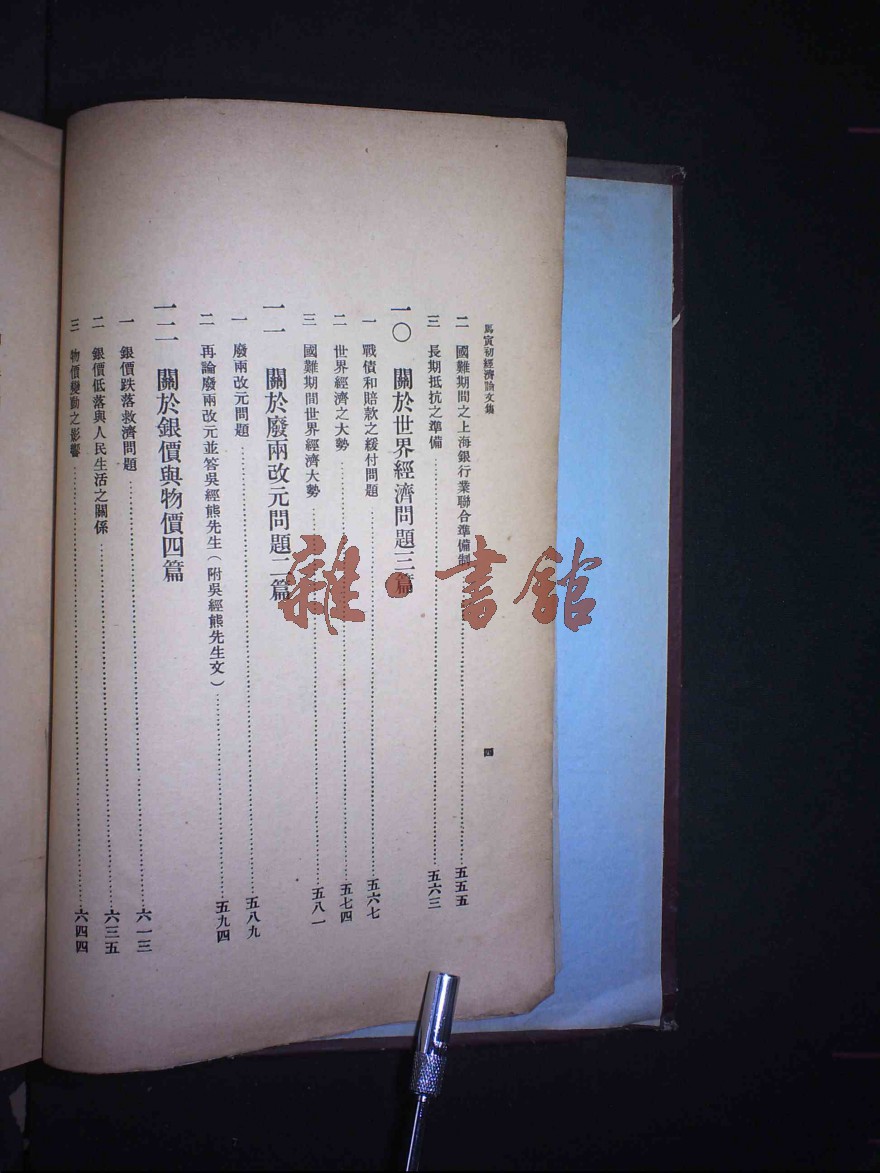 馬寅初經濟論文集
四
二 國難期間之上海銀行業聯合準備制……五五五
三 長期抵抗之準備……五六三
一〇 關於世界經濟問題三篇
一 戰債和賠款之緩付問題……五六七
二 世界經濟之大勢……五七四
三 國難期間世界經濟大勢……五八一
一一 關於廢兩改元問題二篇
一 廢兩改元問題……五八九
二 再論廢兩改元並答吳經熊先生（附吳經熊先生文）……五九四
一二 關於銀價與物價四篇
一 銀價跌落救濟問題……六一三
二 銀價低落與人民生活之關係……六三五
三 物價變動之影響……六四四
雜·書館